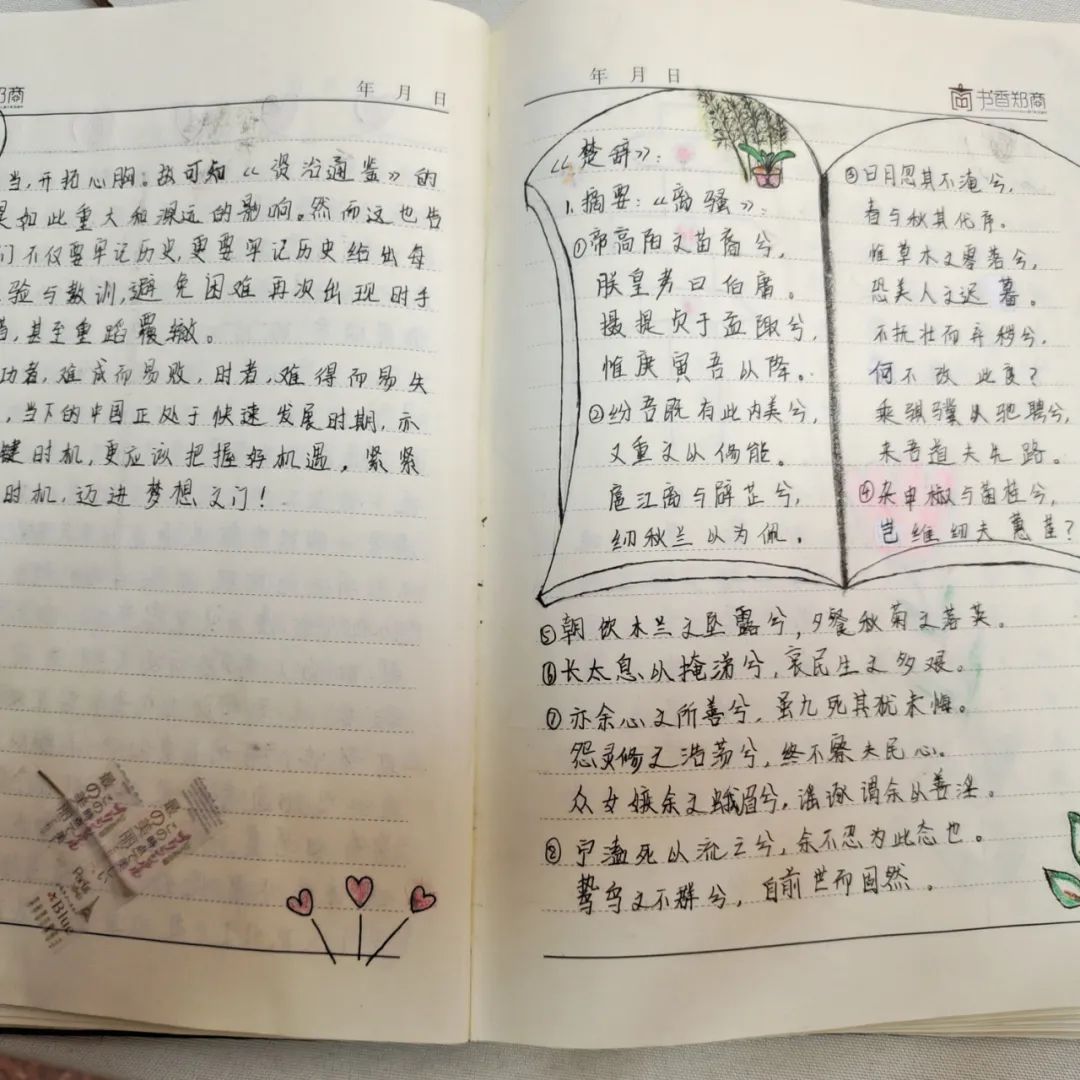 郑商
年 月 日
当,开拓心胸。故可知《资治通鉴》的
是如此重大和深远的影响。然而这也告
们不仅要牢记历史,更要牢记历史给出每
验与教训,避免困难再次出现时手
,甚至重蹈覆辙。
功者,难成而易败,时者,难得而易失
,当下的中国正处于快速发展时期,亦
键时机,更应该把握好机遇,紧紧
时机,迈进梦想之门!
Blue
年 月 日
书香郑商
《楚辞》:
1.摘要:《离骚》:
①帝高阳之苗裔兮,
朕皇考曰伯庸。
摄提贞于孟陬兮,
惟庚寅吾以降。
②纷吾既有此内美兮,
又重之以修能。
扈江离与辟芷兮,
纫秋兰以为佩。
③日月忽其不淹兮,
春与秋其代序。
惟草木之零落兮,
恐美人之迟暮。
不抚壮而弃秽兮,
何不改此度?
乘骐骥以驰骋兮,
来吾道夫先路。
④杂申椒与菌桂兮,
岂维纫夫蕙茝?
⑤朝饮木兰之坠露兮,夕餐秋菊之落英。
⑥长太息以掩涕兮,哀民生之多艰。
⑦亦余心之所善兮,虽九死其犹未悔。
怨灵修之浩荡兮,终不察夫民心。
众女嫉余之蛾眉兮,谣诼谓余以善淫。
⑧宁溘死以流亡兮,余不忍为此态也。
鸷鸟之不群兮,自前世而固然。